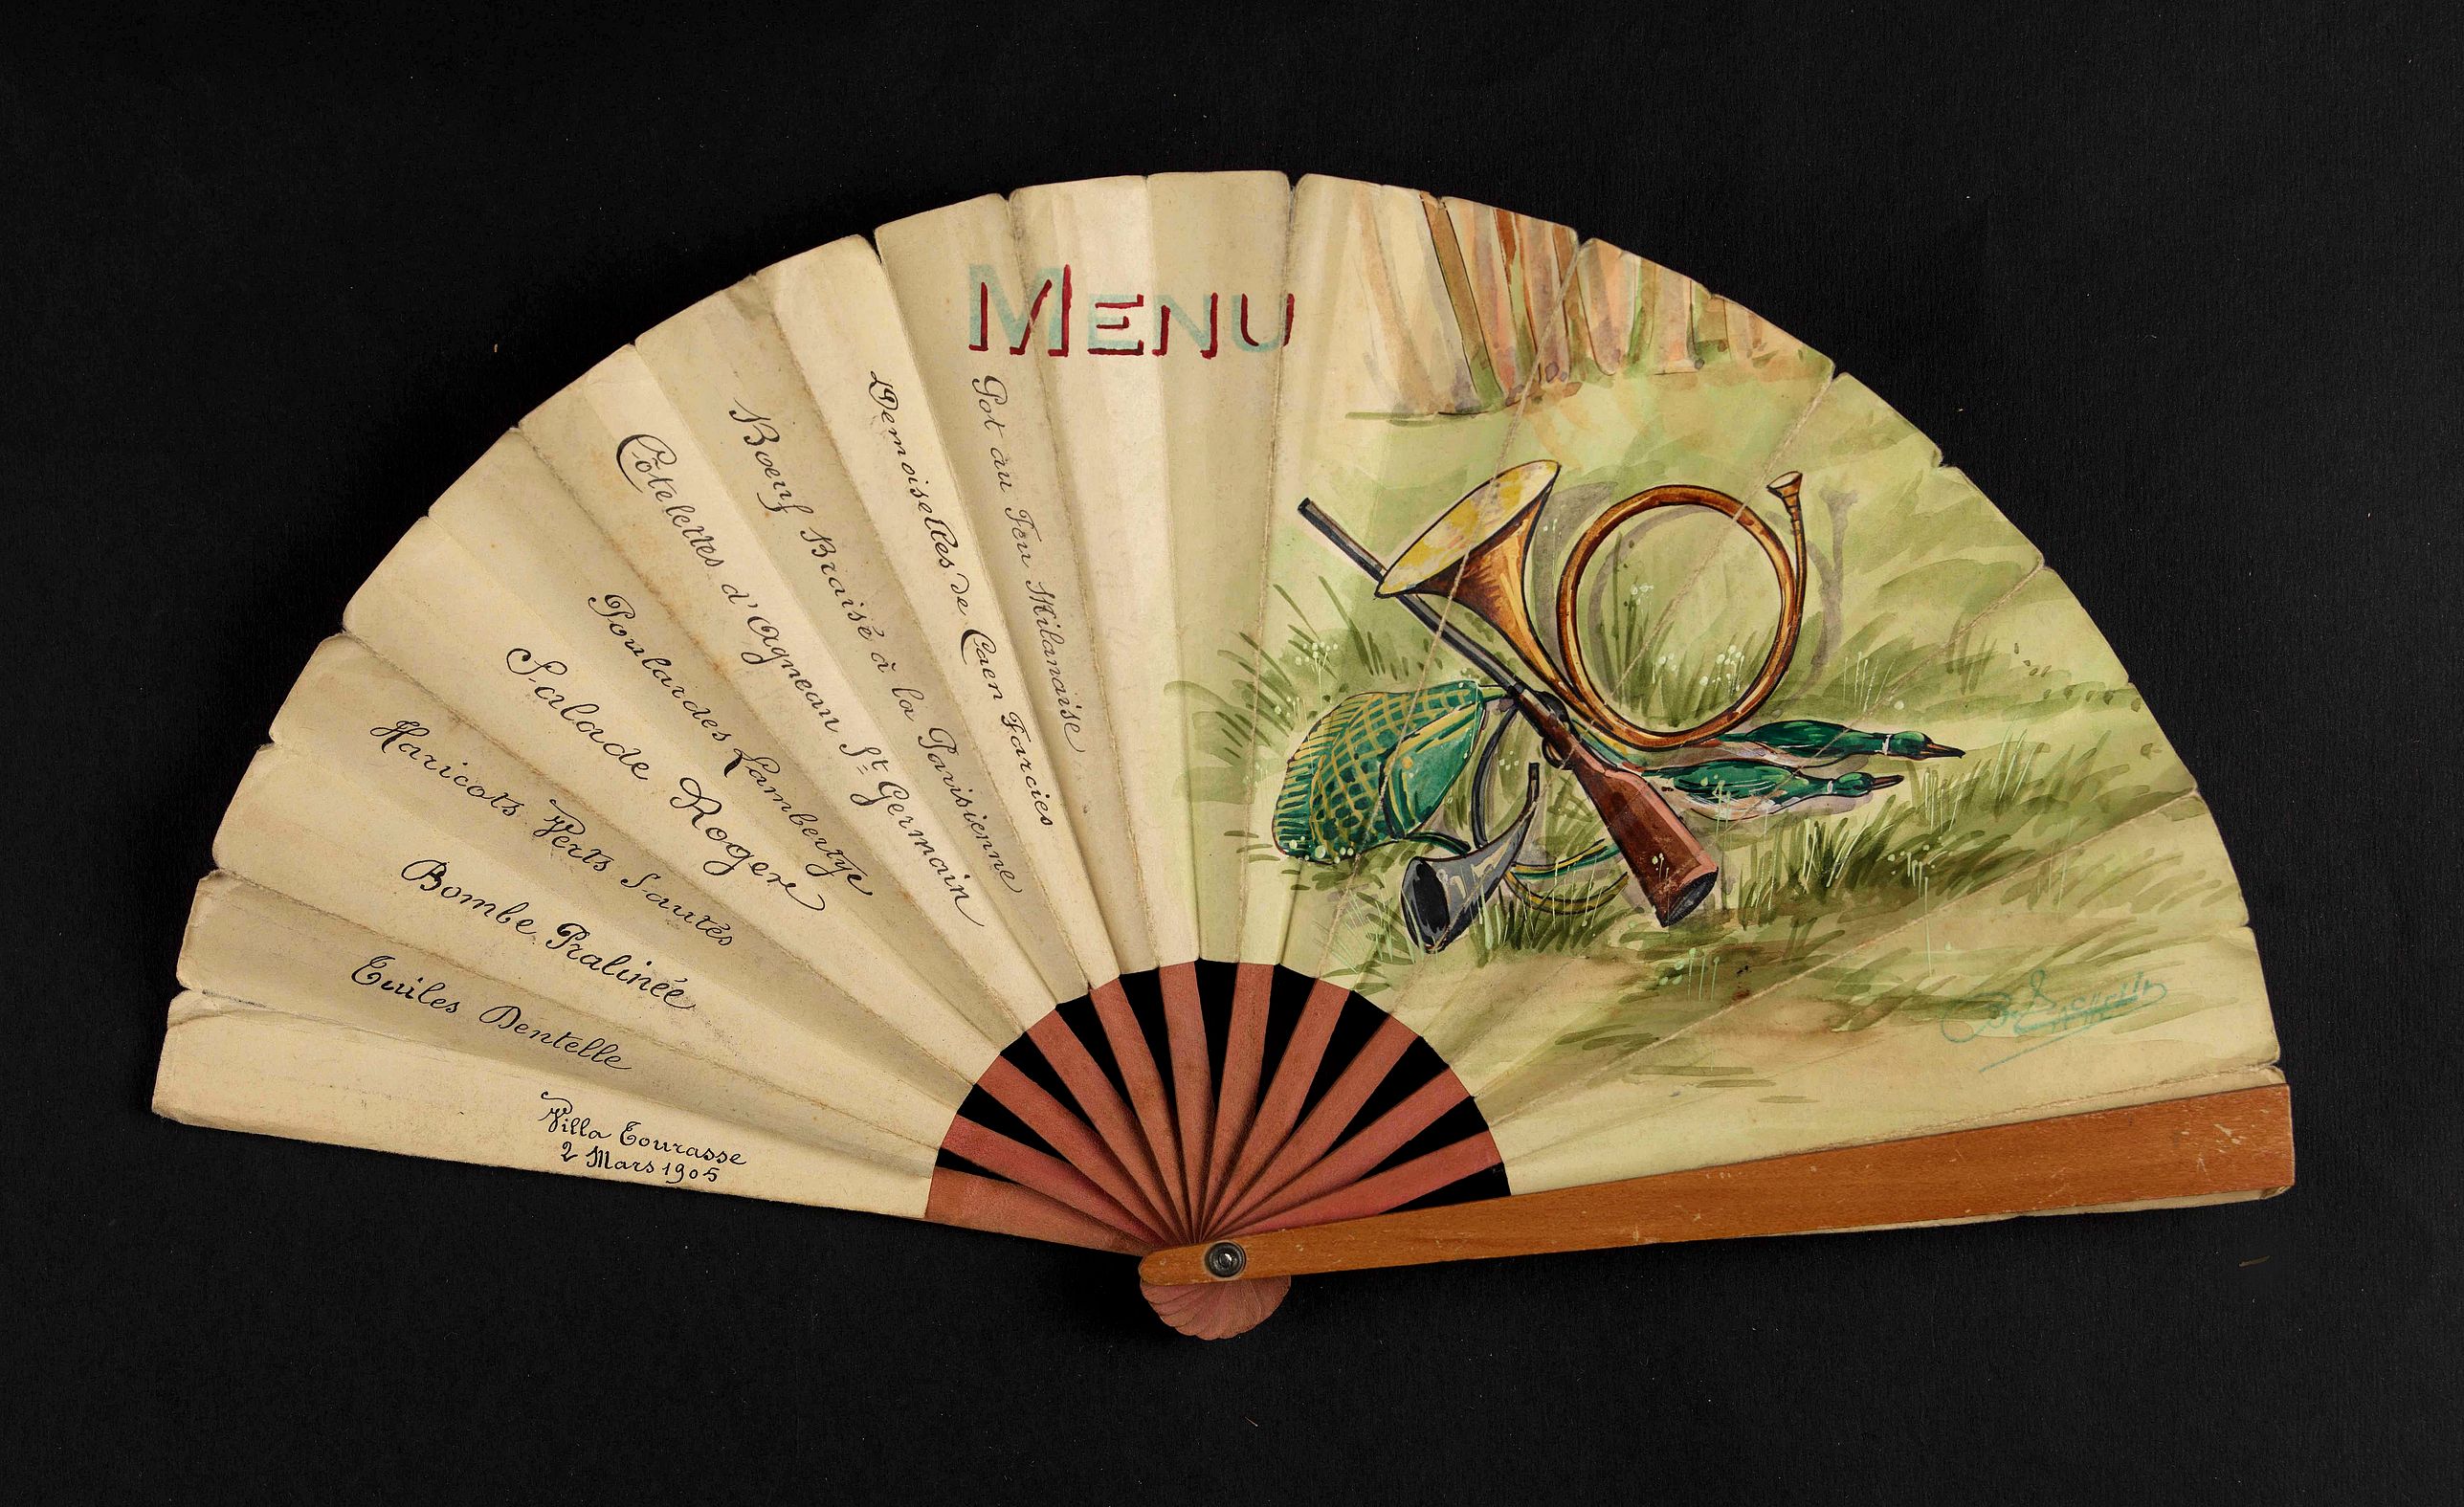 MENU
Pot au Feu Milanaise
Demoiselles de Caen Farcies
Boeuf Braisé à la Parisienne
Côtelettes d'Agneau St Germain
Poulardes Lambertye
Salade Roger
Haricots Verts Sautés
Bombe Pralinée
Tuiles Dentelle
Villa Tourasse
2 Mars 1905